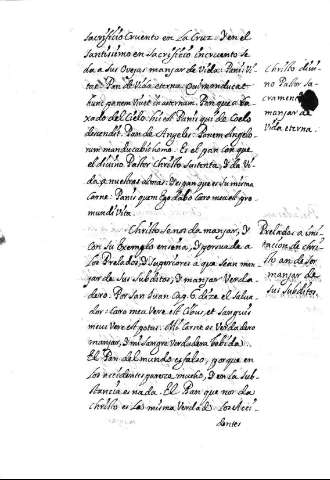 sacrificio Cruento en La Cruz: Y en el
Santissimo en Sacrificio Incruento se
da a sus Ovejas manjar de Vida: Panis Vi-
tae: Pan de Vida eterna: Qui manducat
hunc panem Vivet in aeternum. Pan que a ba-
xado del Cielo: hic est Panis qui de Coelo
decendit. Pan de Angeles: Panem Angelo-
rum manducabit homo. Es el pan con que
el divino Pastor Christo sustenta, y da Vi-
da a nuestras almas: Y es pan que es su misma
Carne: Panis quem Ego dabo Caro mea est pro
mundi Vita.
Christo senos da manjar, Y
con su Exemplo enseña, y persuade a
Los Prelados, y Superiores a que sean man-
jar de sus Subditos, Y manjar Verda-
dero. Por San Juan Cap. 6. dize el Salva-
dor: Caro mea Vere est Cibus, et sanguis
meus Vere est potus: Mi Carne es Verdadero
manjar, y mi sangre Verdadera bebida.
El Pan del mundo es falso, porque en
Los accidentes parece mucho, Y en la Sub-
stancia es nada. El Pan que nos da
Christo es La misma Verdad. Los Acci-
dentes
Christo divi-
no Pastor Sa-
cramen
manjar de
Vida eterna.
Prelados a imi-
tacion de Chri-
sto an de ser
manjar de
sus subditos.